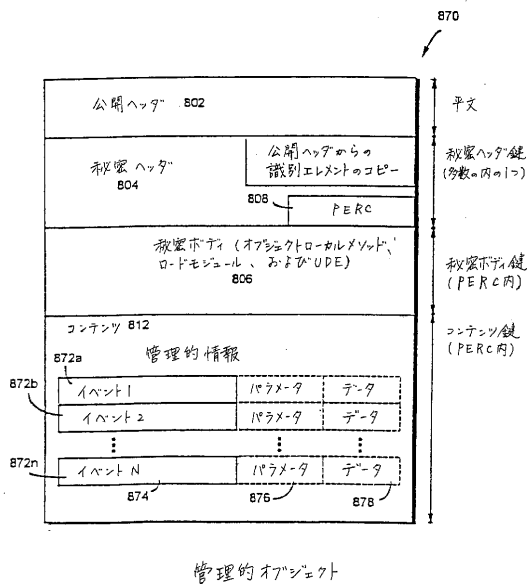 870
公開ヘッダ 802
平文
秘密ヘッダ
804
公開ヘッダからの
識別エレメントのコピー
808
PERC
秘密ヘッダ鍵
(多数の内の1つ)
秘密ボディ (オブジェクトローカルメソッド、
ロードモジュール、およびUDE)
806
秘密ボディ鍵
(PERC内)
コンテンツ 812
コンテンツ鍵
(PERC内)
管理的情報
872a
イベント1 パラメータ データ
872b
イベント2 パラメータ データ
872n
イベントN パラメータ データ
874 876 878
管理的オブジェクト